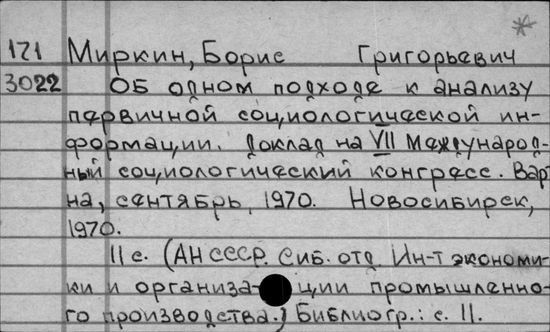 *
171 Миркин, Борис Григорьевич
3022 Об одном подходе к анализу
первичной социологической ин-
формации. Доклад на VII Международ-
ный социологический конгресс. Вар-
на, сентябрь, 1970. Новосибирск,
1970.
11 с. (АН СССР. Сиб. отд. Ин-т экономи-
ки и организации промышленно-
го производства.) Библиогр.: с. 11.